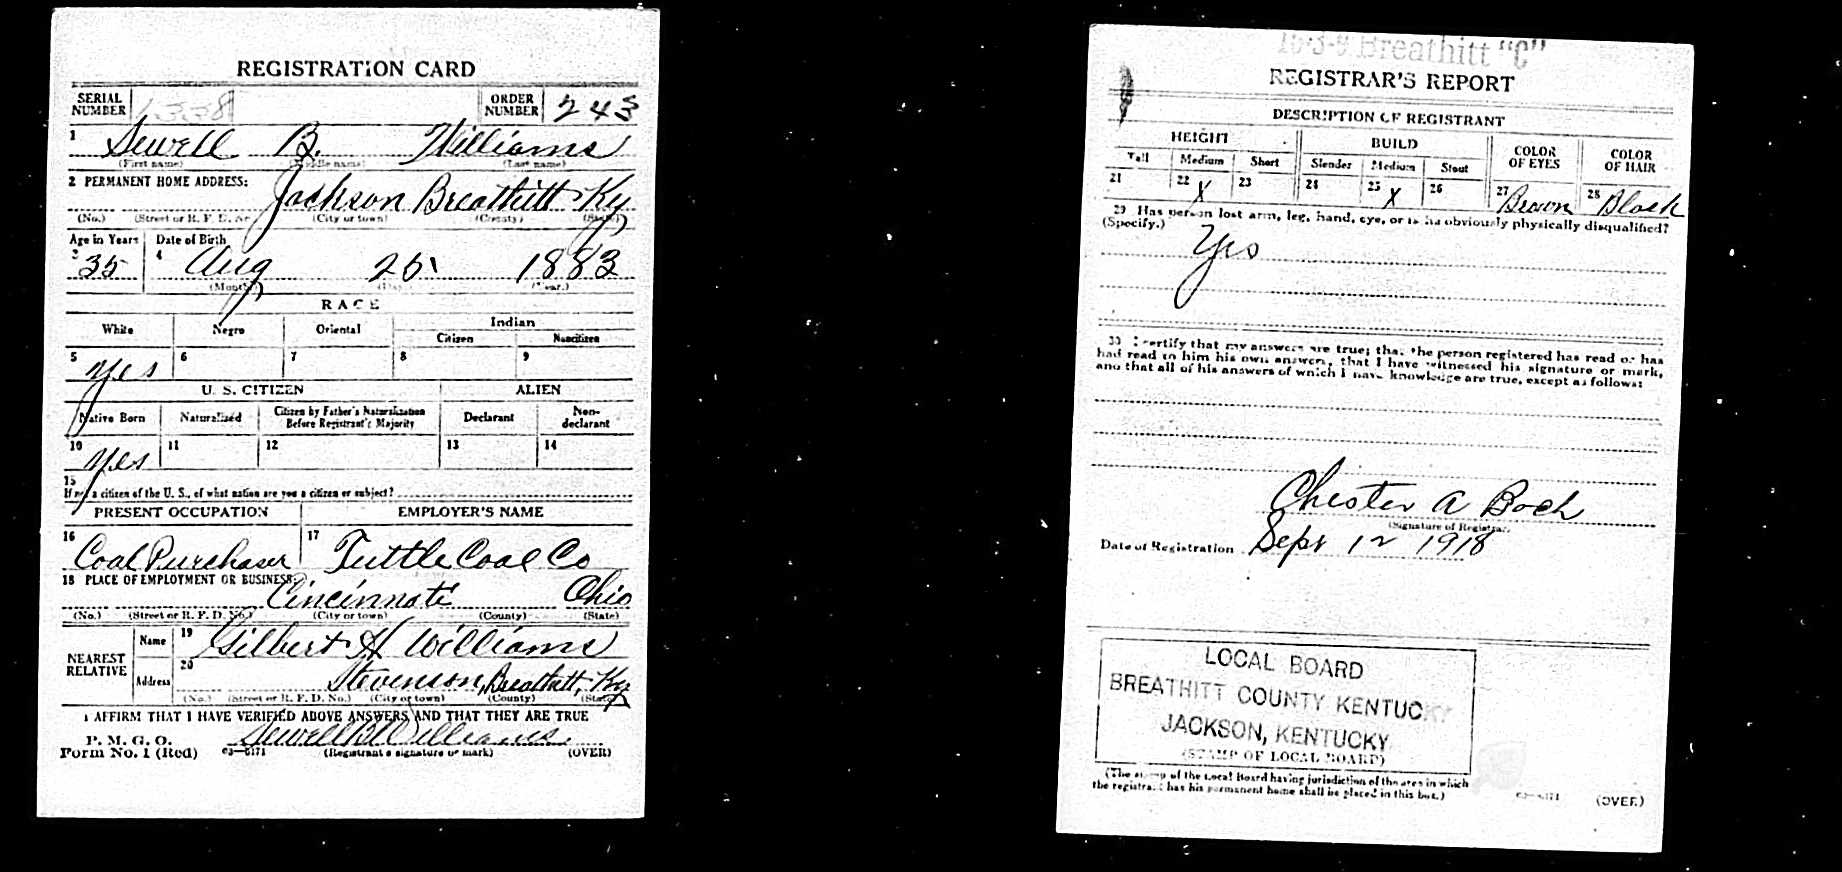 REGISTRATION CARD
SERIAL NUMBER 1338 ORDER NUMBER 243
1 Sewell B. Williams
(First name) (Middle name) (Last name)
2 PERMANENT HOME ADDRESS: Jackson Breathitt Ky
(No.) (Street or R. F. D. No.) (City or town) (County) (State)
Age in Years Date of Birth
3 35 4 Aug 25 1883
(Month.) (Day.) (Year.)
RACE
White Negro Oriental Indian
Citizen Noncitizen
5 6 7 8 9
Yes
U. S. CITIZEN ALIEN
Native Born Naturalized Citizen by Father's Naturalization Before Registrant's Majority Declarant Non-declarant
10 11 12 13 14
Yes
15
If not a citizen of the U. S., of what nation are you a citizen or subject?
PRESENT OCCUPATION EMPLOYER'S NAME
16 Coal Purchaser 17 Tuttle Coal Co
18 PLACE OF EMPLOYMENT OR BUSINESS:
Cincinnati Ohio
(No.) (Street or R. F. D. No.) (City or town) (County) (State)
NEAREST RELATIVE Name 19 Gilbert H Williams
Address 20 Stevenson, Breathitt, Ky
(No.) (Street or R. F. D. No.) (City or town) (County) (State)
I AFFIRM THAT I HAVE VERIFIED ABOVE ANSWERS AND THAT THEY ARE TRUE
P. M. G. O.
Form No. 1 (Red) 03—6171 Sewell B Williams (Registrant's signature or mark) (OVER)
16-3-9 Breathitt "C"
REGISTRAR'S REPORT
DESCRIPTION OF REGISTRANT
HEIGHT BUILD COLOR OF EYES COLOR OF HAIR
Tall Medium Short Slender Medium Stout
21 22 X 23 24 25 X 26 27 Brown 28 Black
29 Has person lost arm, leg, hand, eye, or is he obviously physically disqualified?
(Specify.) Yes
30 I certify that my answers are true; that the person registered has read or has
had read to him his own answers, that I have witnessed his signature or mark,
and that all of his answers of which I have knowledge are true, except as follows:
Chester A Bach
(Signature of Registrar)
Date of Registration Sept 12 1918
LOCAL BOARD
BREATHITT COUNTY KENTUCKY
JACKSON, KENTUCKY
(STAMP OF LOCAL BOARD)
(The stamp of the Local Board having jurisdiction of the area in which
the registrant has his permanent home shall be placed in this box.)
03—6171 (OVER)